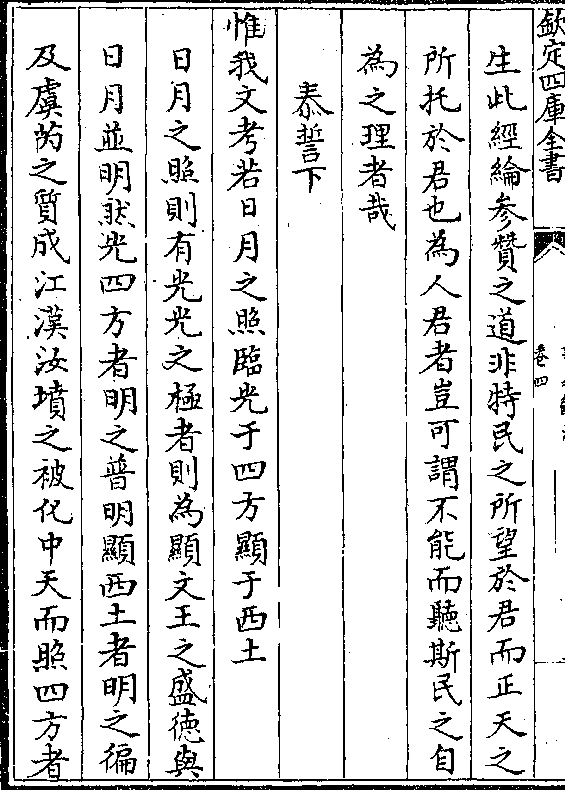 欽定四庫全書
卷四
生此經綸参贊之道非特民之所望於君而正天之
所托於君也為人君者豈可謂不能而聽斯民之自
為之理者哉
泰誓下
惟我文考若日月之照臨光于四方顯于西土
日月之照則有光光之極者則為顯文王之盛德與
日月並明然光四方者明之普明顯西土者明之徧
及虞芮之質成江漢汝墳之被化中天而照四方者